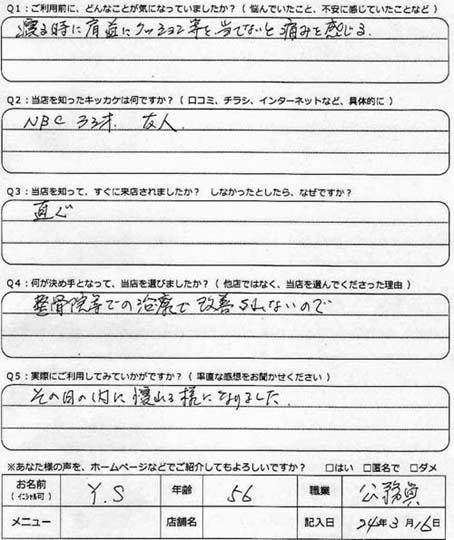 Q1：ご利用前に、どんなことが気になっていましたか？（ 悩んでいたこと、不安に感じていたことなど ）
寝る時に肩並にクッション等を当てないと痛みを感じる.
Q2：当店を知ったキッカケは何ですか？（ 口コミ、チラシ、インターネットなど、具体的に ）
NBC 友人.
Q3：当店を知って、すぐに来店されましたか？ しなかったとしたら、なぜですか？
直ぐ
Q4：何が決め手となって、当店を選びましたか？（ 他店ではなく、当店を選んでくださった理由 ）
整骨院等での治療で改善されないので
Q5：実際にご利用してみていかがですか？（ 率直な感想をお聞かせください ）
その日の内に寝れる様になりました.
※あなた様の声を、ホームページなどでご紹介してもよろしいですか？ □はい □匿名で □ダメ
お名前 （イニシャル可） Y.S 年齢 56 職業 公務員
メニュー 店舗名 記入日 24年3月16日